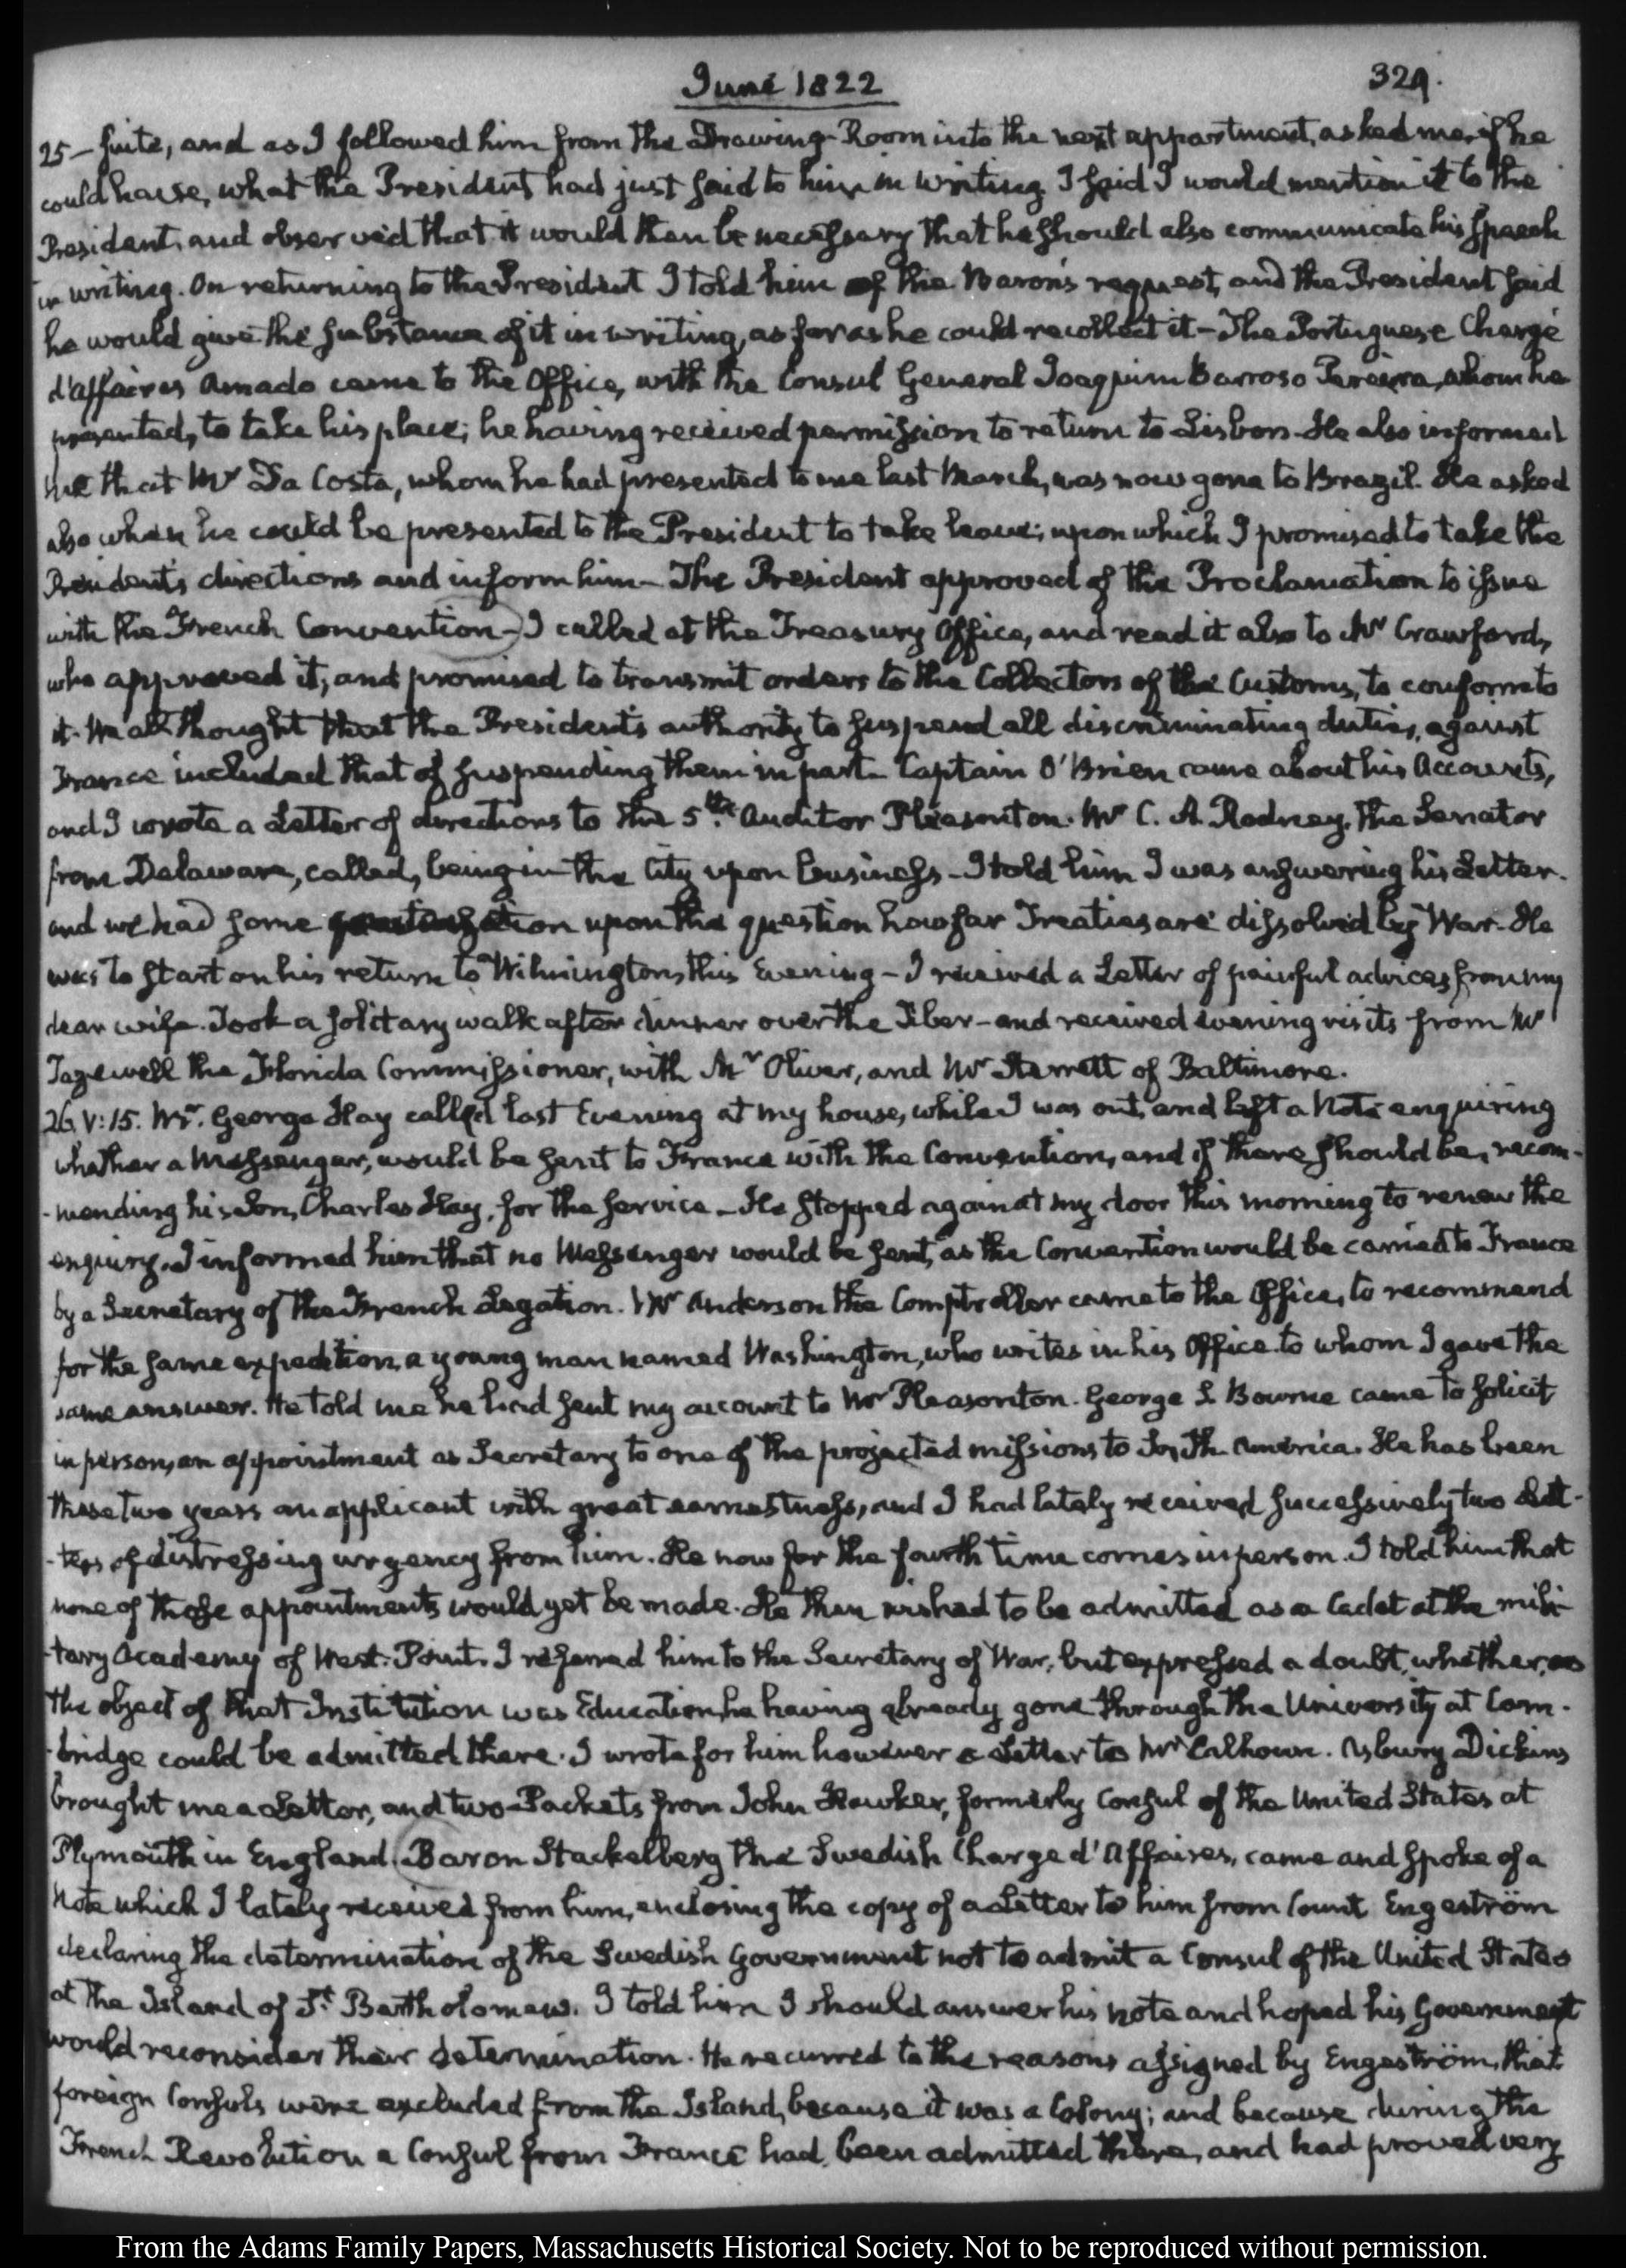 June 1822
329.
25 – suite, and as I followed him from the Drawing-Room into the next appartment, asked me, if he
could have, what the President had just said to him in writing. I said I would mention it to the
President, and observed that it would then be necessary that he should also communicate his Speech
in writing. On returning to the President I told him of the Baron's request, and the President said
he would give the substance of it in writing, as far as he could recollect it – The Portuguese Chargé
d'affaires Amado came to the Office, with the Consul General Joaquim Barroso Pereira, whom he
presented, to take his place; he having received permission to return to Lisbon. He also informed
me that Mr Da Costa, whom he had presented to me last March, was now gone to Brazil. He asked
also when he could be presented to the President to take leave; upon which I promised to take the
President's directions and inform him – The President approved of the Proclamation to issue
with the French Convention – I called at the Treasury Office, and read it also to Mr Crawford,
who approved it, and promised to transmit orders to the Collectors of the Customs, to conform to
it. We all thought that the President's authority to suspend all discriminating duties, against
France included that of suspending them in part. Captain O'Brien came about his Accounts,
and I wrote a Letter of directions to the 5th. Auditor Pleasonton. Mr C. A. Rodney, the Senator
from Delaware, called, being in the City upon business – I told him I was answering his Letter.
and we had some conversation upon the question how far Treaties are dissolved by War. He
was to start on his return to Wilmington, this Evening – I received a Letter of painful advices from my
dear wife. Took a solitary walk after dinner over the Tiber – and received evening visits from Mr
Tazewell the Florida Commissioner, with Mr Oliver, and Mr Sterrett of Baltimore.
26. V:15. Mr. George Hay called last Evening at my house, while I was out, and left a Note enquiring
whether a Messenger, would be sent to France with the Convention, and if there should be, recom-
-mending his Son, Charles Hay, for the service – He stopped again at my door this morning to renew the
enquiry. I informed him that no Messenger would be sent, as the Convention would be carried to France
by a Secretary of the French Legation. Mr Anderson the Comptroller came to the Office, to recommend
for the same expedition, a young man named Washington, who writes in his Office. to whom I gave the
same answer. He told me he had sent my account to Mr Pleasonton. George S. Bourne came to solicit
in person, an appointment as Secretary to one of the projected missions to South America. He has been
these two years an applicant with great earnestness, and I had lately received successively two Let-
-ters of distressing urgency from him. He now for the fourth time comes in person. I told him that
none of those appointments would yet be made. He then wished to be admitted as a Cadet at the mili-
-tary Academy of West-Point. I referred him to the Secretary of War, but expressed a doubt, whether, as
the object of that Institution was Education, he having already gone through the University at Cam-
-bridge could be admitted there. I wrote for him however a Letter to Mr Calhoun. Asbury Dickins
brought me a Letter, and two Packets from John Hawker, formerly Consul of the United States at
Plymouth in England. Baron Stackelberg the Swedish Chargé d'Affaires, came and spoke of a
Note which I lately received from him, enclosing the copy of a Letter to him from Count Engeström
declaring the determination of the Swedish Government not to admit a Consul of the United States
at the Island of St. Bartholomew. I told him I should answer his note and hoped his Government
would reconsider their determination. He recurred to the reasons assigned by Engeström, that
foreign Consuls were excluded from the Island, because it was a Colony; and because during the
French Revolution a Consul from France had been admitted there, and had proved very
From the Adams Family Papers, Massachusetts Historical Society. Not to be reproduced without permission.